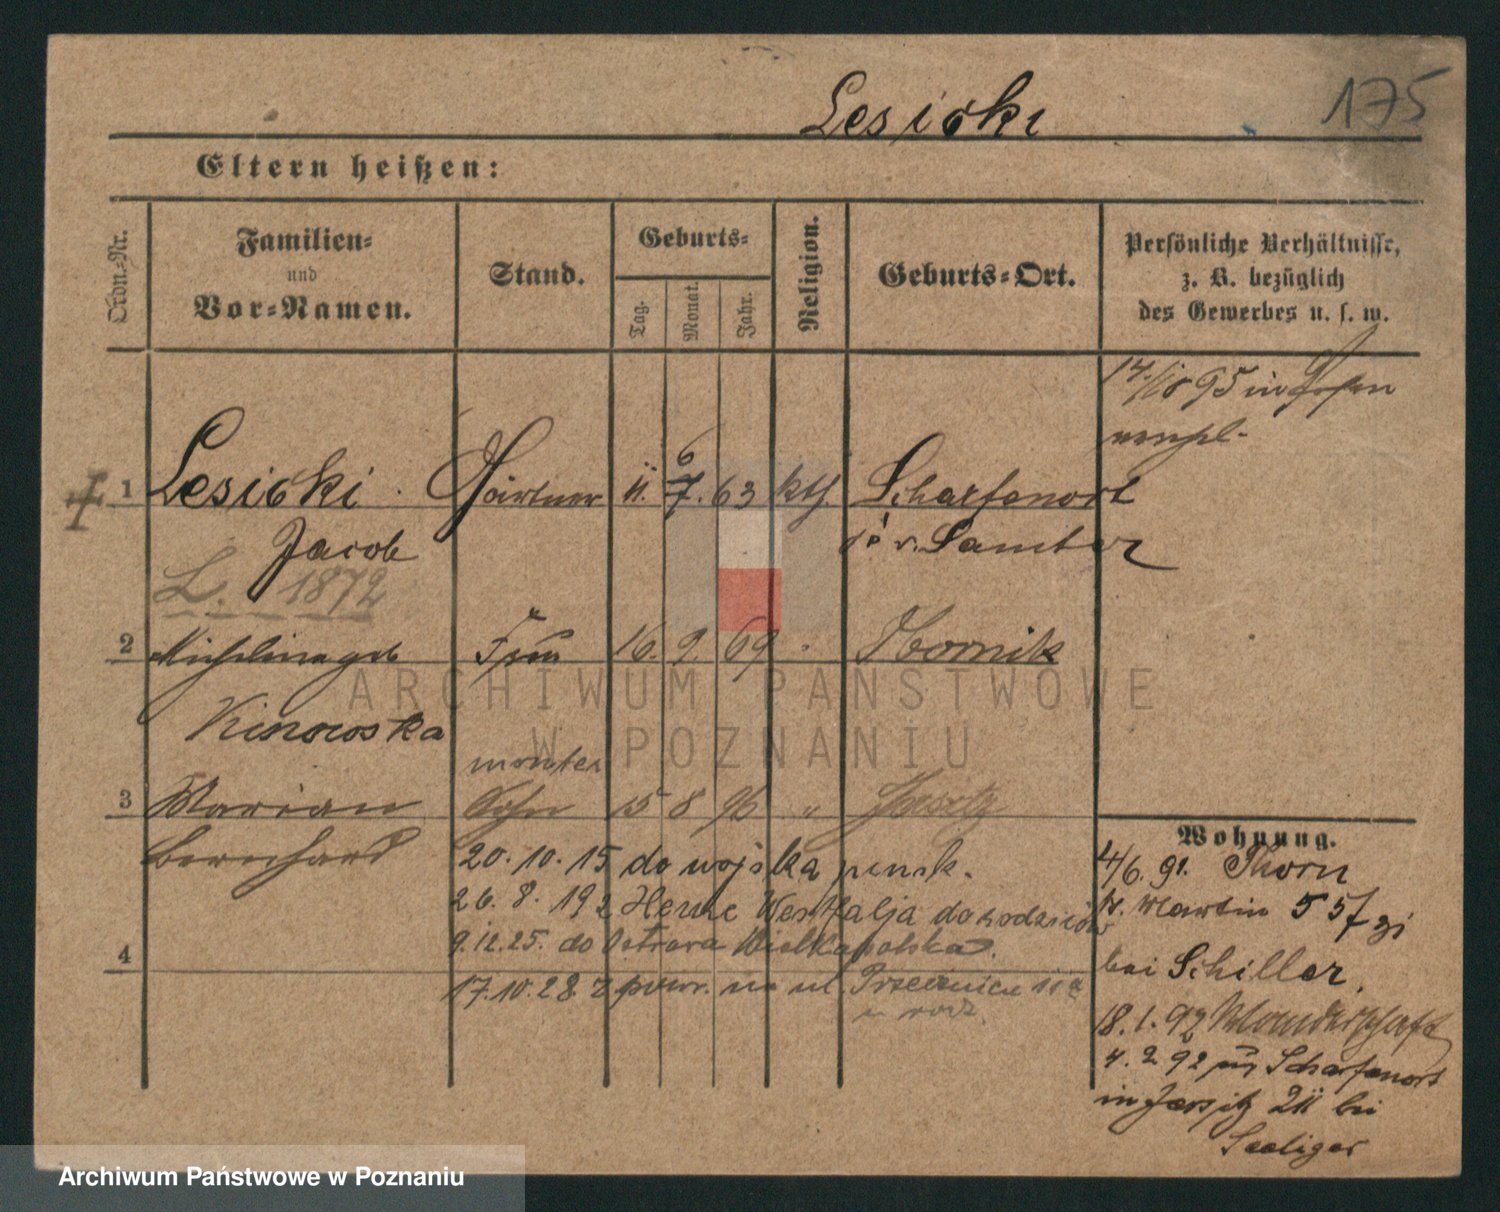 Lesicki
175
Eltern heißen:
Ordn.-Nr.
Familien-
und
Vor-Namen.
Stand.
Geburts-
Tag.
Monat.
Jahr.
Religion.
Geburts-Ort.
Persönliche Verhältnisse,
z. B. bezüglich
des Gewerbes u. s. w.
in Posen
1 Lesicki Gärtner 11. 7. 63 kth. Scharfenort
6
Jacob
v. Samter
L. 1872
2 Michalina geb Frau 16. 9. 69 Kornik
monter
3 Marian Sohn 15 8 96 " Jersitz
Bernhard
20. 10. 15 do wojska prusk.
26. 8. 192 Herne Westfalja do rodziców
9.12.25. do Ostrowa Wielkopolska.
4
17.10.28. z powr. na ul.
u rodz.
Wohnung.
4/6. 91. Thorn
St. Martin 557
bei Schiller.
18. 1. 92 Wanderschaft
4. 2. 92 Scharfenort
in Jersitz 211 bei
Seeliger
ARCHIWUM PAŃSTWOWE
W POZNANIU
Archiwum Państwowe w Poznaniu